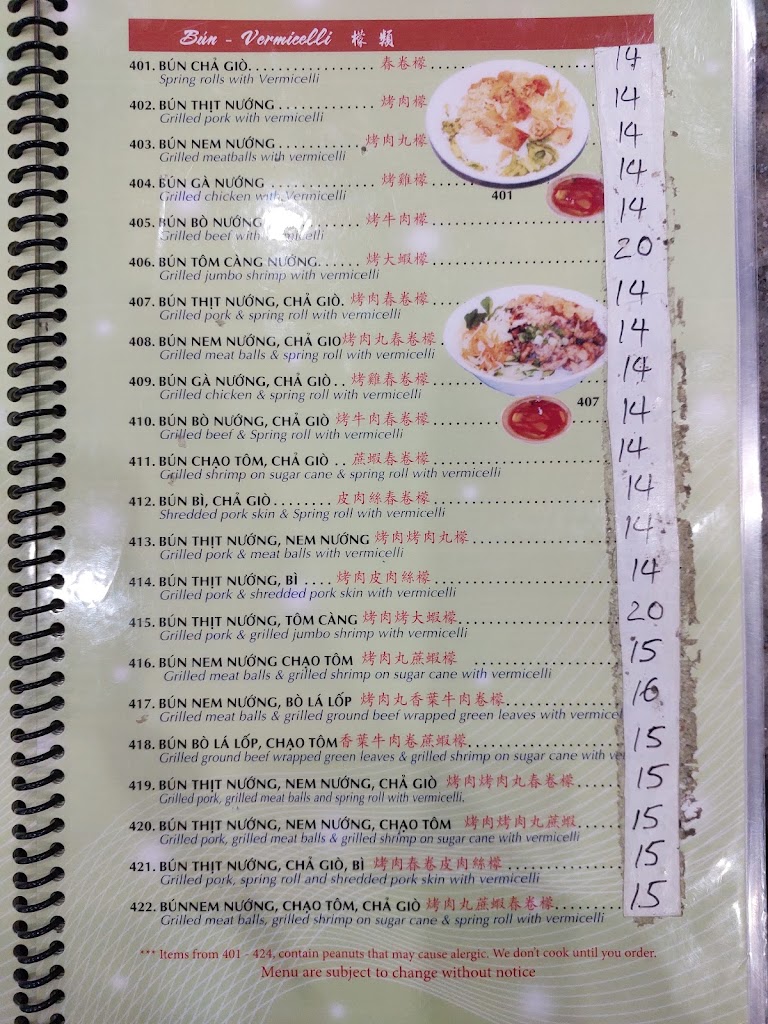 Bún - Vermicelli 檬 類
401. BÚN CHẢ GIÒ 春卷檬 14
Spring rolls with Vermicelli
402. BÚN THỊT NƯỚNG 烤肉檬 14
Grilled pork with vermicelli
403. BÚN NEM NƯỚNG 烤肉丸檬 14
Grilled meatballs with vermicelli
404. BÚN GÀ NƯỚNG 烤雞檬 14
Grilled chicken with Vermicelli
401
405. BÚN BÒ NƯỚNG 烤牛肉檬 14
Grilled beef with
406. BÚN TÔM CÀNG NƯỚNG 烤大蝦檬 20
Grilled jumbo shrimp with vermicelli
407. BÚN THỊT NƯỚNG, CHẢ GIÒ. 烤肉春卷檬 14
Grilled pork & spring roll with vermicelli
408. BÚN NEM NƯỚNG, CHẢ GIO 烤肉丸春卷檬 14
Grilled meat balls & spring roll with vermicelli
409. BÚN GÀ NƯỚNG, CHẢ GIÒ 烤雞春卷檬 14
Grilled chicken & spring roll with vermicelli
407
410. BÚN BÒ NƯỚNG, CHẢ GIÒ 烤牛肉春卷檬 14
Grilled beef & Spring roll with vermicelli
411. BÚN CHẠO TÔM, CHẢ GIÒ 蔗蝦春卷檬 14
Grilled shrimp on sugar cane & spring roll with vermicelli
412. BÚN BÌ, CHẢ GIÒ 皮肉絲春卷檬 14
Shredded pork skin & Spring roll with vermicelli
413. BÚN THỊT NƯỚNG, NEM NƯỚNG 烤肉烤肉丸檬 14
Grilled pork & meat balls with vermicelli
414. BÚN THỊT NƯỚNG, BÌ 烤肉皮肉絲檬 14
Grilled pork & shredded pork skin with vermicelli
415. BÚN THỊT NƯỚNG, TÔM CÀNG 烤肉烤大蝦檬 20
Grilled pork & grilled jumbo shrimp with vermicelli
416. BÚN NEM NƯỚNG CHẠO TÔM 烤肉丸蔗蝦檬 15
Grilled meat balls & grilled shrimp on sugar cane with vermicelli
417. BÚN NEM NƯỚNG, BÒ LÁ LỐP 烤肉丸香葉牛肉卷檬 16
Grilled meat balls & grilled ground beef wrapped green leaves with vermicel
418. BÚN BÒ LÁ LỐP, CHẠO TÔM 香葉牛肉卷蔗蝦檬 15
Grilled ground beef wrapped green leaves & grilled shrimp on sugar cane with ve
419. BÚN THỊT NƯỚNG, NEM NƯỚNG, CHẢ GIÒ 烤肉烤肉丸春卷檬 15
Grilled pork, grilled meat balls and spring roll with vermicelli.
420. BÚN THỊT NƯỚNG, NEM NƯỚNG, CHẠO TÔM 烤肉烤肉丸蔗蝦 15
Grilled pork, grilled meat balls & grilled shrimp on sugar cane with vermicelli
421. BÚN THỊT NƯỚNG, CHẢ GIÒ, BÌ 烤肉春卷皮肉絲檬 15
Grilled pork, spring roll and shredded pork skin with vermicelli
422. BÚNNEM NƯỚNG, CHẠO TÔM, CHẢ GIÒ 烤肉丸蔗蝦春卷檬 15
Grilled meat balls, grilled shrimp on sugar cane & spring roll with vermicelli
*** Items from 401 - 424, contain peanuts that may cause alergic. We don't cook until you order.
Menu are subject to change without notice